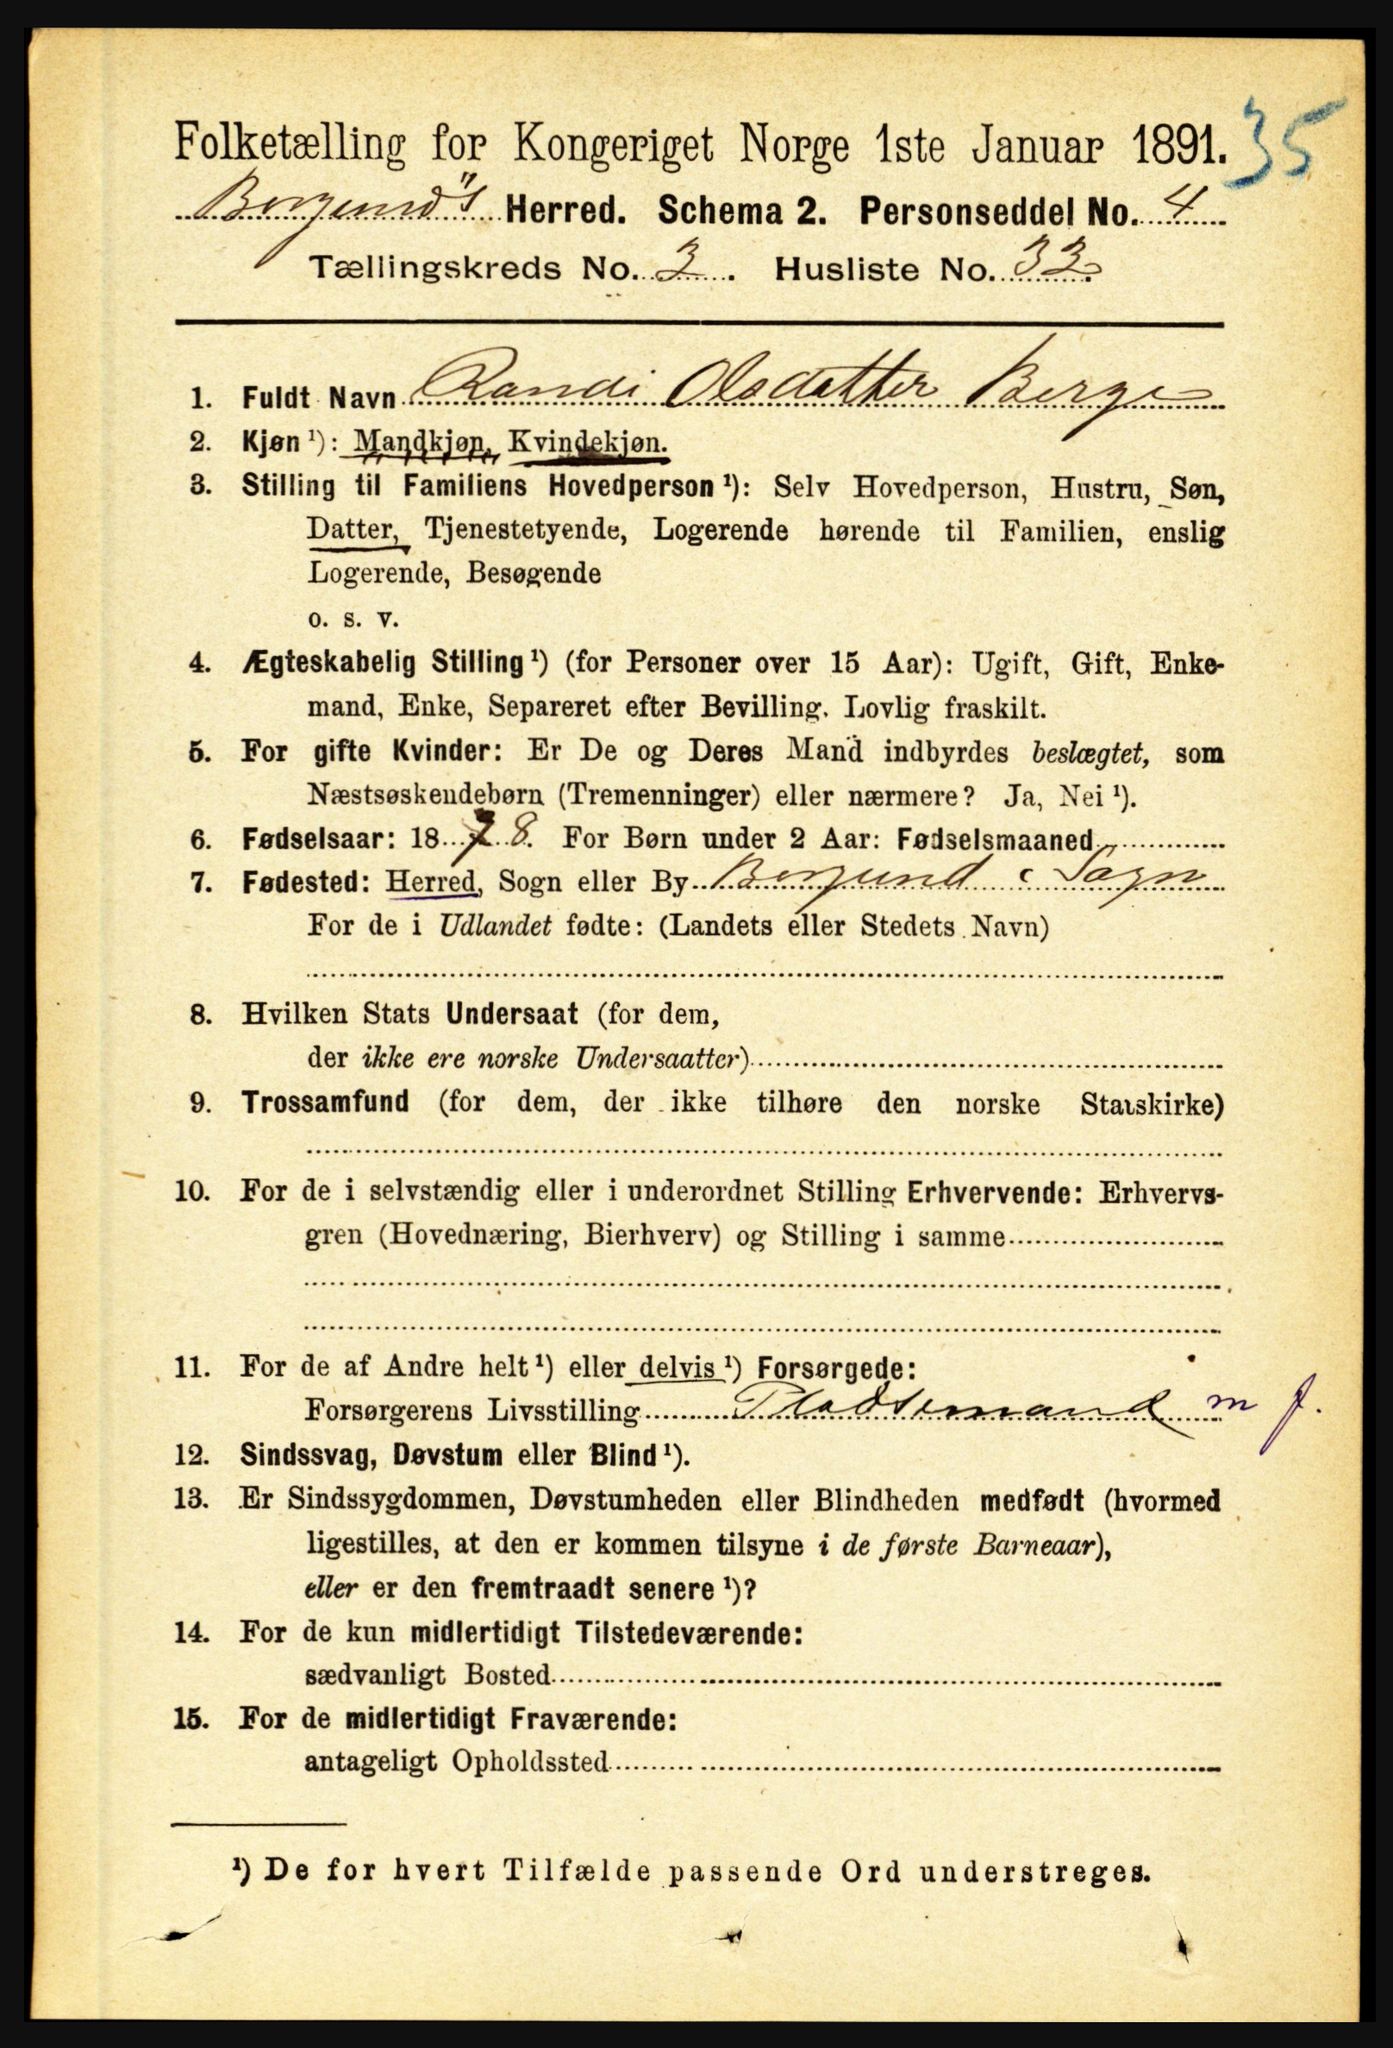 Folketælling for Kongeriget Norge 1ste Januar 1891. 35
Borgund's Herred. Schema 2. Personseddel No. 4
Tællingskreds No. 3. Husliste No. 33.
1. Fuldt Navn Randi Olsdatter Berge
2. Kjøn ¹): Mandkjøn, Kvindekjøn.
3. Stilling til Familiens Hovedperson ¹): Selv Hovedperson, Hustru, Søn,
Datter, Tjenestetyende, Logerende hørende til Familien, enslig
Logerende, Besøgende
o. s. v.
4. Ægteskabelig Stilling ¹) (for Personer over 15 Aar): Ugift, Gift, Enke-
mand, Enke, Separeret efter Bevilling. Lovlig fraskilt.
5. For gifte Kvinder: Er De og Deres Mand indbyrdes beslægtet, som
Næstsøskendebørn (Tremenninger) eller nærmere? Ja, Nei ¹).
6. Fødselsaar: 1878. For Børn under 2 Aar: Fødselsmaaned
7. Fødested: Herred, Sogn eller By Borgund i Sogn
For de i Udlandet fødte: (Landets eller Stedets Navn)
8. Hvilken Stats Undersaat (for dem,
der ikke ere norske Undersaatter)
9. Trossamfund (for dem, der ikke tilhøre den norske Statskirke)
10. For de i selvstændig eller i underordnet Stilling Erhvervende: Erhvervs-
gren (Hovednæring, Bierhverv) og Stilling i samme
11. For de af Andre helt ¹) eller delvis ¹) Forsørgede:
Forsørgerens Livsstilling Pladsemand m f.
12. Sindssvag, Døvstum eller Blind ¹).
13. Er Sindssygdommen, Døvstumheden eller Blindheden medfødt (hvormed
ligestilles, at den er kommen tilsyne i de første Barneaar),
eller er den fremtraadt senere ¹)?
14. For de kun midlertidigt Tilstedeværende:
sædvanligt Bosted
15. For de midlertidigt Fraværende:
antageligt Opholdssted
¹) De for hvert Tilfælde passende Ord understreges.